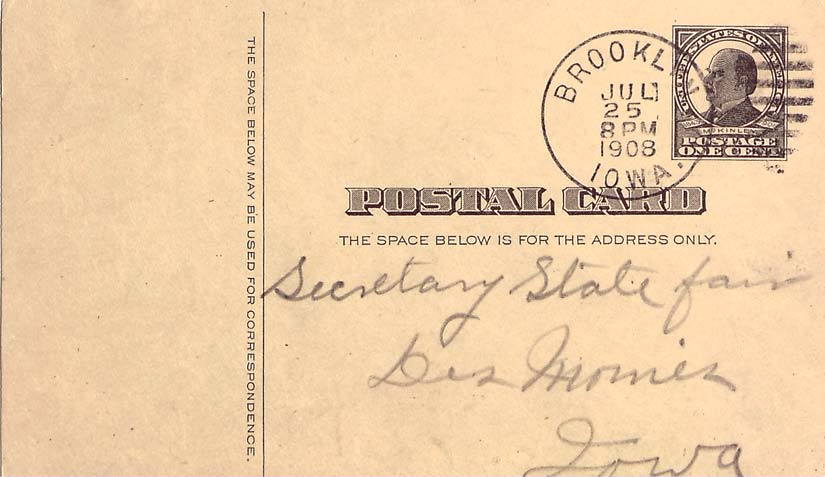 THE SPACE BELOW MAY BE USED FOR CORRESPONDENCE.
BROOKLYN
JUL
25
8 PM
1908
IOWA.
UNITED STATES OF AMERICA
McKINLEY
POSTAGE
ONE CENT
POSTAL CARD
THE SPACE BELOW IS FOR THE ADDRESS ONLY.
Secretary State fair
Des Moines
Iowa